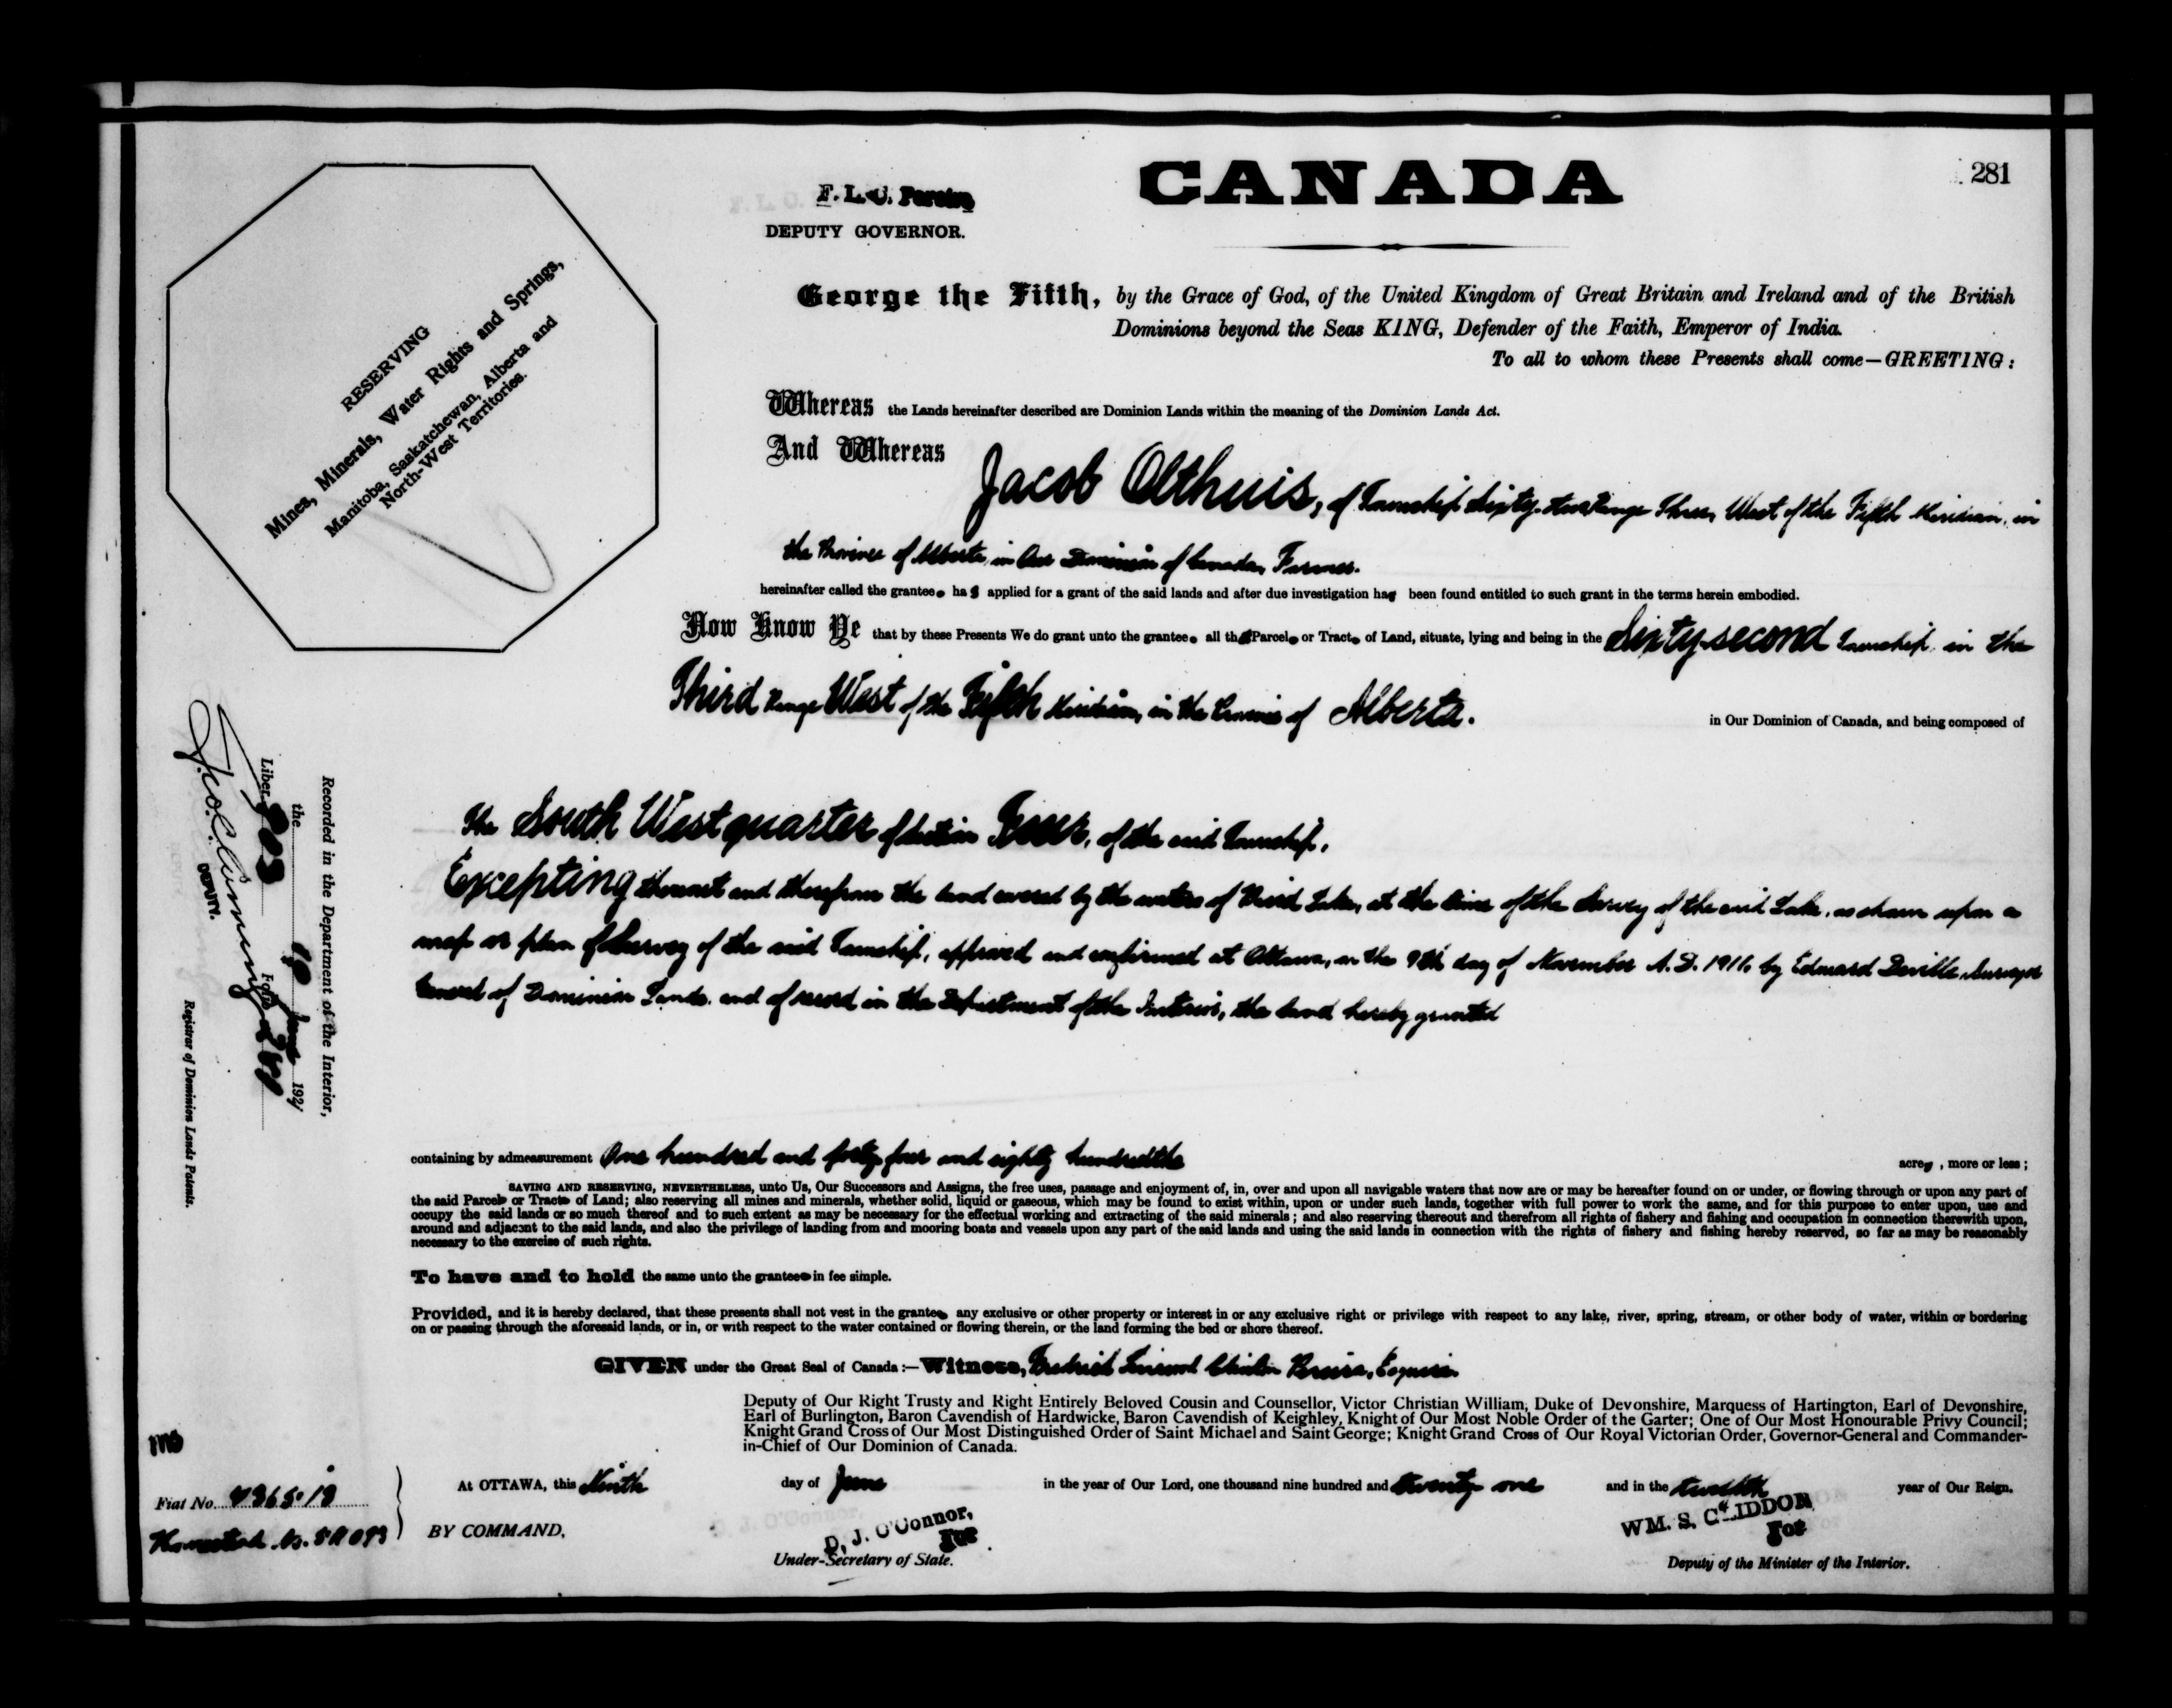 281
CANADA
F. L. C. Pereira
DEPUTY GOVERNOR.
RESERVING
Mines, Minerals, Water Rights and Springs,
Manitoba, Saskatchewan, Alberta and
North-West Territories.
George the Fifth, by the Grace of God, of the United Kingdom of Great Britain and Ireland and of the British
Dominions beyond the Seas KING, Defender of the Faith, Emperor of India.
To all to whom these Presents shall come—GREETING:
Whereas the Lands hereinafter described are Dominion Lands within the meaning of the Dominion Lands Act.
And Whereas
Jacob Olthuis, of Township Sixty-two Range Three, West of the Fifth Meridian, in
the Province of Alberta, in Our Dominion of Canada, Farmer.
hereinafter called the grantee has applied for a grant of the said lands and after due investigation has been found entitled to such grant in the terms herein embodied.
Now Know Ye that by these Presents We do grant unto the grantee all that Parcel or Tract of Land, situate, lying and being in the Sixty-second Township in the
Third Range West of the Fifth Meridian, in the Province of Alberta. in Our Dominion of Canada, and being composed of
The South West quarter of Section Four, of the said Township,
Excepting thereout and therefrom the land covered by the waters of Lake, at the time of the Survey of the said Lake, as shown upon a
map or plan of Survey of the said Township, approved and confirmed at Ottawa, on the 9th day of November A.D. 1911, by Edouard Deville Surveyor
General of Dominion Lands, and of record in the Department of the Interior, the land hereby granted
containing by admeasurement One hundred and forty four and eighty hundredths acres, more or less;
SAVING AND RESERVING, NEVERTHELESS, unto Us, Our Successors and Assigns, the free uses, passage and enjoyment of, in, over and upon all navigable waters that now are or may be hereafter found on or under, or flowing through or upon any part of
the said Parcel or Tract of Land; also reserving all mines and minerals, whether solid, liquid or gaseous, which may be found to exist within, upon or under such lands, together with full power to work the same, and for this purpose to enter upon, use and
occupy the said lands or so much thereof and to such extent as may be necessary for the effectual working and extracting of the said minerals; and also reserving thereout and therefrom all rights of fishery and fishing and occupation in connection therewith upon,
around and adjacent to the said lands, and also the privilege of landing from and mooring boats and vessels upon any part of the said lands and using the said lands in connection with the rights of fishery and fishing hereby reserved, so far as may be reasonably
necessary to the exercise of such rights.
To have and to hold the same unto the grantee in fee simple.
Provided, and it is hereby declared, that these presents shall not vest in the grantee any exclusive or other property or interest in or any exclusive right or privilege with respect to any lake, river, spring, stream, or other body of water, within or bordering
on or passing through the aforesaid lands, or in, or with respect to the water contained or flowing therein, or the land forming the bed or shore thereof.
GIVEN under the Great Seal of Canada:—Witness, Pereira, Esquire
Deputy of Our Right Trusty and Right Entirely Beloved Cousin and Counsellor, Victor Christian William, Duke of Devonshire, Marquess of Hartington, Earl of Devonshire,
Earl of Burlington, Baron Cavendish of Hardwicke, Baron Cavendish of Keighley, Knight of Our Most Noble Order of the Garter; One of Our Most Honourable Privy Council;
Knight Grand Cross of Our Most Distinguished Order of Saint Michael and Saint George; Knight Grand Cross of Our Royal Victorian Order, Governor-General and Commander-
in-Chief of Our Dominion of Canada.
At OTTAWA, this Ninth day of June in the year of Our Lord, one thousand nine hundred and twenty one and in the twelfth year of Our Reign.
BY COMMAND,
D. J. O'Connor,
For
Under-Secretary of State.
WM. S. GLIDDON
For
Deputy of the Minister of the Interior.
Recorded in the Department of the Interior,
the June 1921
Liber Folio 281
DEPUTY.
Registrar of Dominion Lands Patents.
Fiat No.
Homestead No.